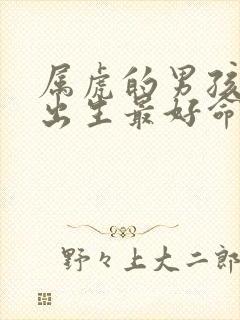 属虎的男孩
出生最好命
野々上大二郎